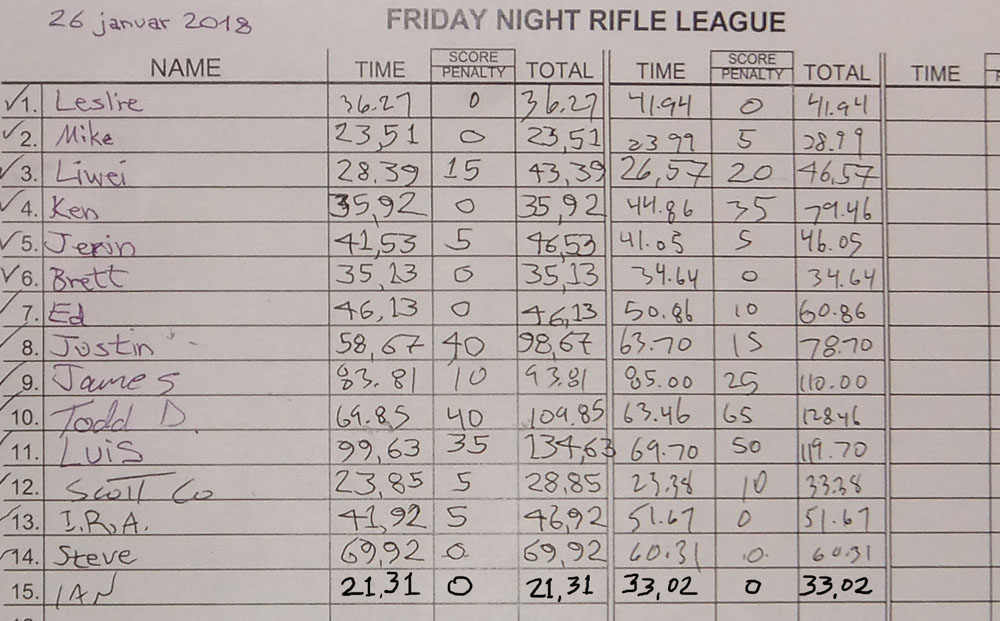 26 januar 2018 FRIDAY NIGHT RIFLE LEAGUE
NAME TIME SCORE PENALTY TOTAL TIME SCORE PENALTY TOTAL TIME
✓1. Leslie 36.27 0 36.27 41.94 0 41.94
✓2. Mike 23,51 0 23,51 23 99 5 28.99
✓3. Liwei 28,39 15 43,39 26,57 20 46,57
✓4. Ken 35,92 0 35,92 44.86 35 79.46
✓5. Jerin 41,53 5 46,53 41.05 5 46.05
✓6. Brett 35,13 0 35,13 34.64 0 34.64
7. Ed 46,13 0 46,13 50.86 10 60.86
8. Justin 58,67 40 98,67 63.70 15 78.70
9. James 83.81 10 93.81 85.00 25 110.00
10. Todd D. 69.85 40 109.85 63.46 65 128.46
11. Luis 99,63 35 134,63 69.70 50 119.70
12. Scott Co 23,85 5 28,85 23.38 10 33.38
13. I.R.A. 41,92 5 46,92 51.67 0 51.67
14. Steve 69,92 0 69,92 60.31 0 60.31
15. IAN 21,31 0 21,31 33,02 0 33,02